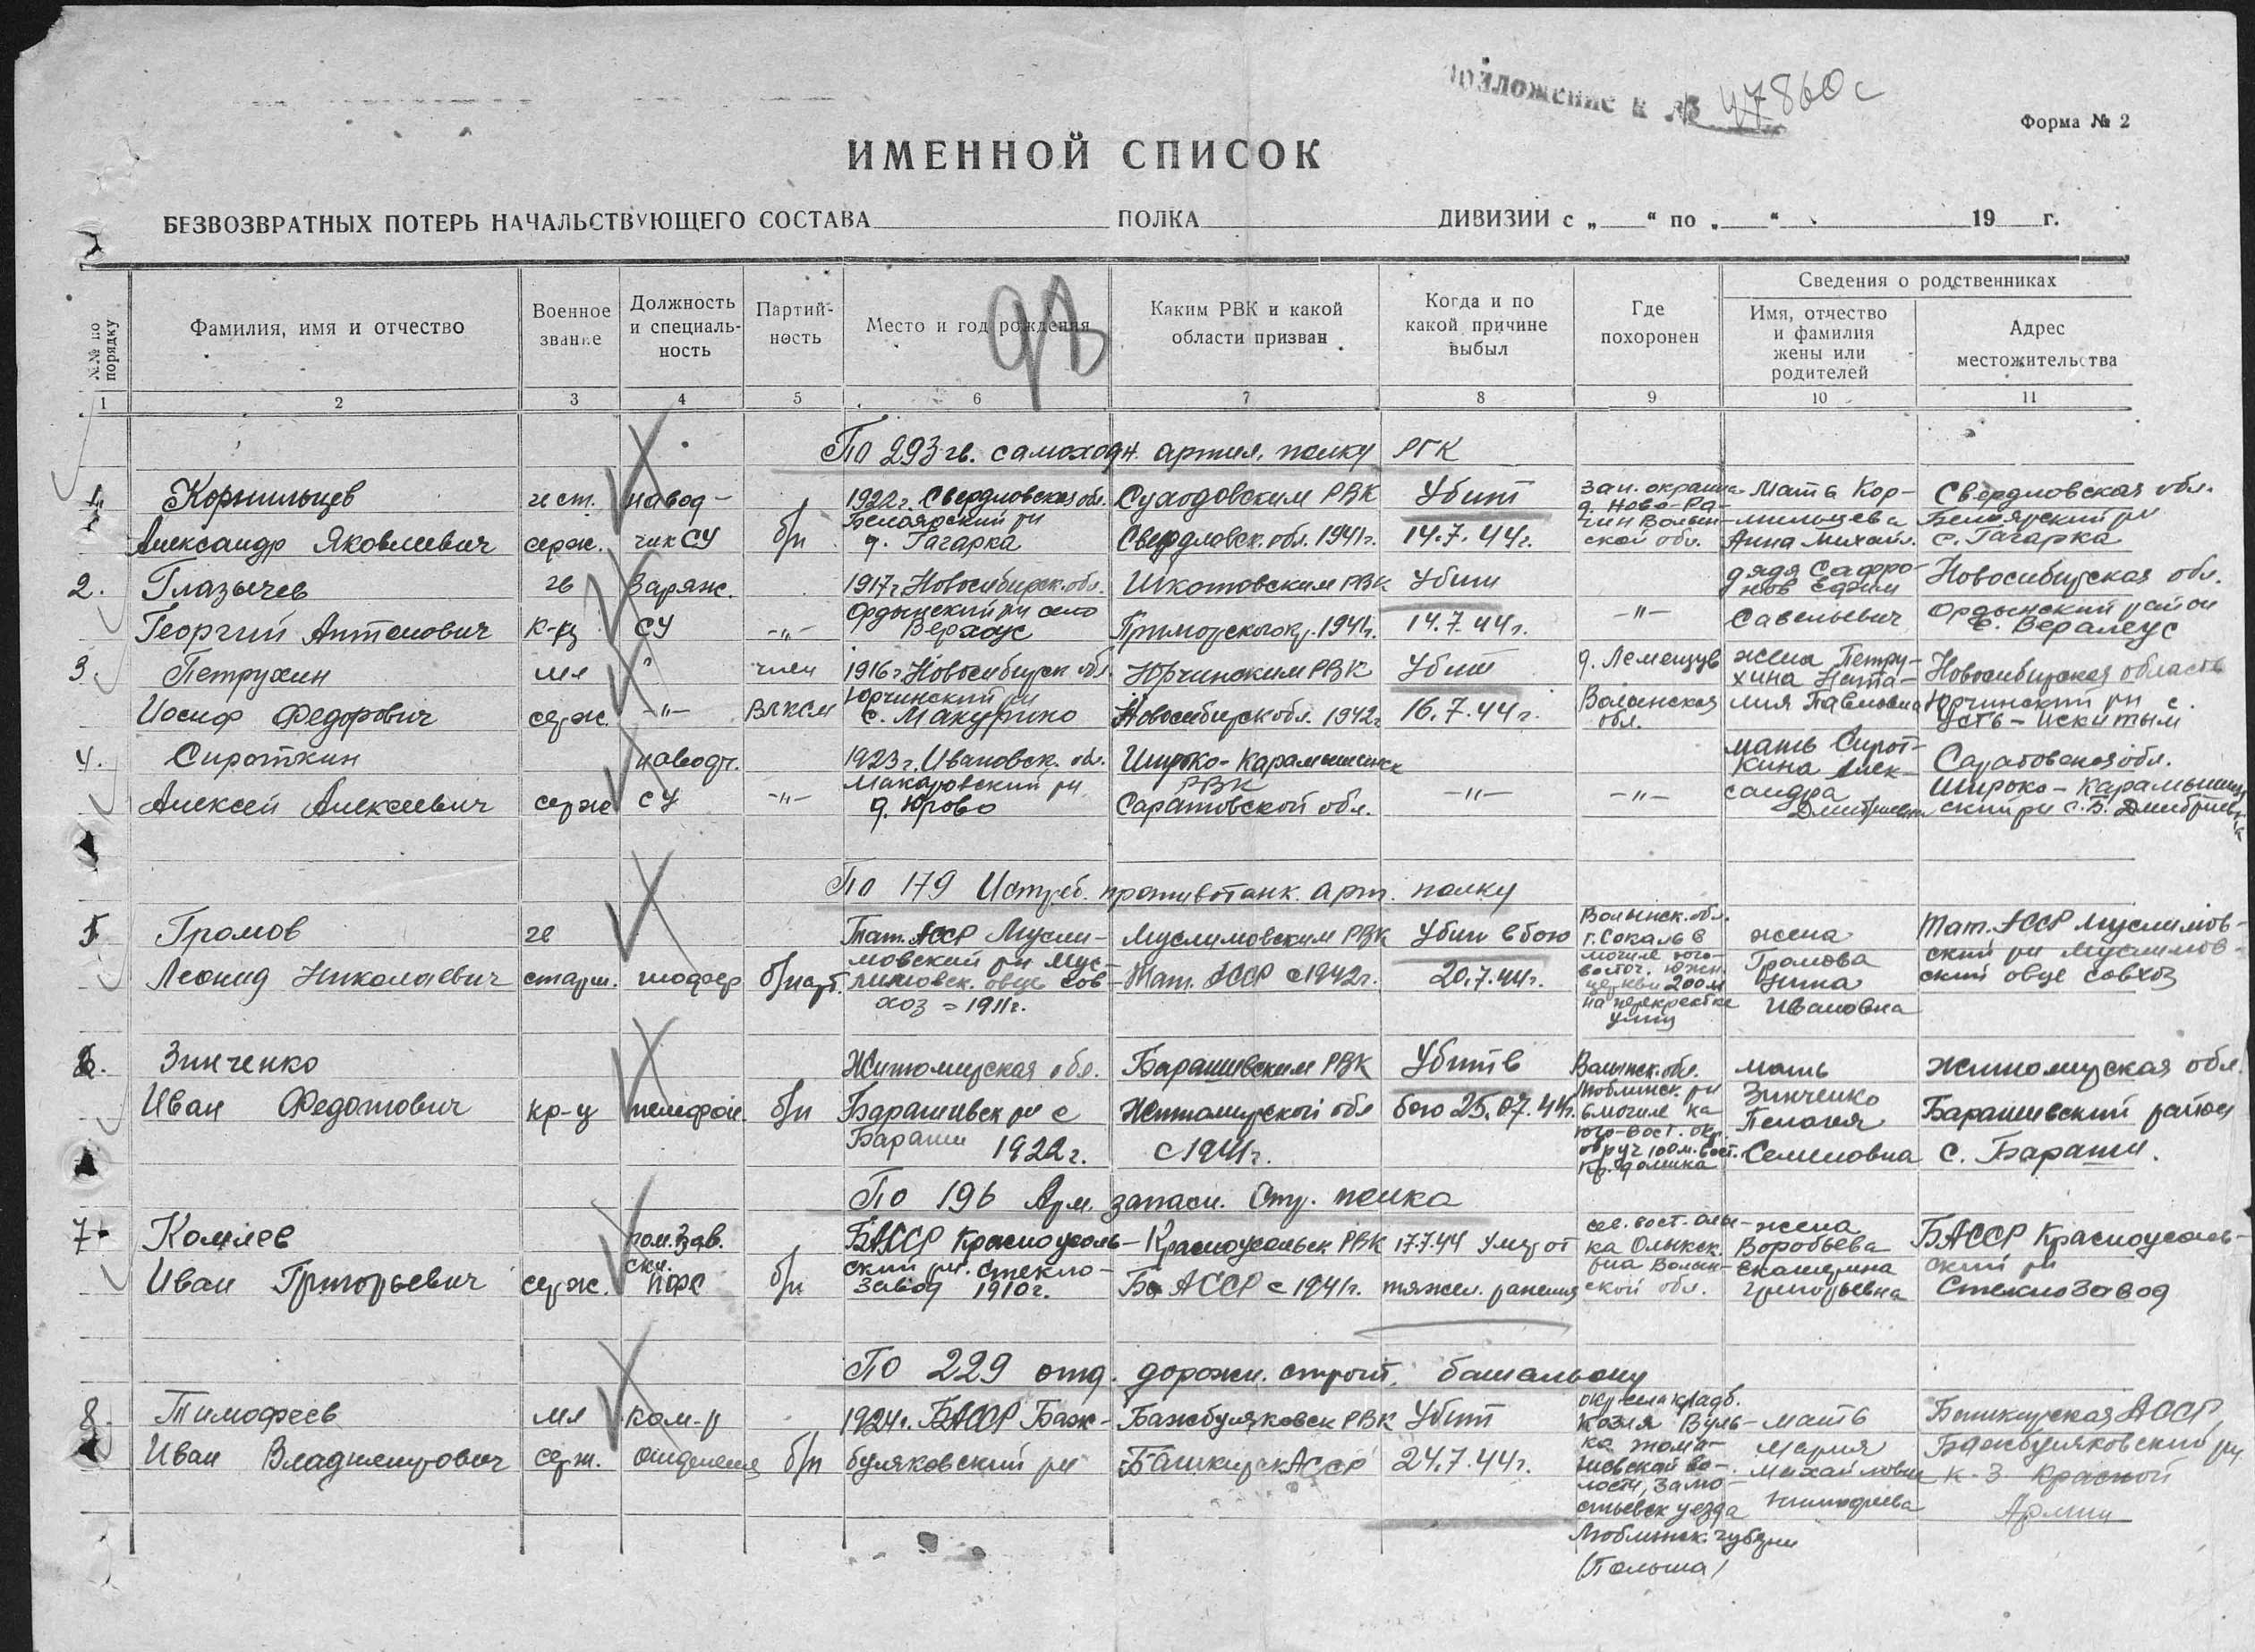 Приложение к № 47860с
Форма № 2
ИМЕННОЙ СПИСОК
БЕЗВОЗВРАТНЫХ ПОТЕРЬ НАЧАЛЬСТВУЮЩЕГО СОСТАВА ПОЛКА ДИВИЗИИ с „ “ по „ “ 19 г.
№№ по порядку
Фамилия, имя и отчество
Военное звание
Должность и специальность
Партийность
Место и год рождения
Каким РВК и какой области призван
Когда и по какой причине выбыл
Где похоронен
Сведения о родственниках
Имя, отчество и фамилия жены или родителей
Адрес местожительства
1 2 3 4 5 6 7 8 9 10 11
По 293 гв. самоходн. артил. полку РГК
1. Корнильцев гв ст. навод- 1922 г. Свердловская обл. Суходовским РВК Убит зап. окраина Мать Кор- Свердловская обл.
Белоярский рн д. Ново-Ра-
Александр Яковлевич серж. чик СУ б/п д. Гагарка Свердловск. обл. 1941 г. 14.7.44 г. ской обл. Анна Михайл. с. Гагарка
чин Волын- мильцева Белоярский рн
2. Глазычев гв Заряж. 1917 г Новосибирск. обл. Шкотовским РВК Убит дядя Сафро- Новосибирская обл.
Ордынский рн село нов Ефим
Георгий Антонович к-ц СУ -"- Приморского кр. 1941 г. 14.7.44 г. -"- Савельевич Ордынский район
3. Петрухин мл " член 1916 г Новосибирск обл. Юрчинским РВК Убит жена Петру- Новосибирская область
Юрчинский рн хина Ната-
Иосиф Федорович серж. -"- ВЛКСМ с. Макурино Новосибирск обл. 1942 г 16.7.44 г. Волынская обл. лия Павловна Юрчинский рн с. Усть-Искитым
4. Сироткин наводч. 1923 г. Ивановск. обл. Широко-Карамышинск мать Сирот- Саратовская обл.
Макаровский рн РВК кина Алек-
Алексей Алексеевич серж СУ -"- д. Юрово Саратовской обл. -"- -"- сандра Дмитриевна Широко-Карамышин
ский рн с. Б. Дмитриевка
По 179 Истреб. противотанк. арт. полку
5 Громов гв Тат. АССР Мусли- Муслимовским РВК Убит в бою Волынск. обл. г. Сокаль в жена Тат. АССР Муслимов-
мовский рн Мус- могиле юго- Громова ский рн Муслимов-
Леонид Николаевич старш. шофер б/парт. лимовск. овце сов- Тат. АССР с 1942 г. 20.7.44 г. церкви 200 м Нина ский овце совхоз
хоз = 1911 г. на перекрестке улиц Ивановна
6. Зинченко Житомирская обл. Барашевским РВК Убит в Волынск. обл. мать Житомирская обл.
Иван Федотович кр-ц телефон. б/п Барашевск рн с Житомирской обл бою 25.07.44 г. в могиле Зинченко Пелагея Барашевский район
Бараши 1922 г. с 1941 г. Семеновна с. Бараши.
По 196 Арм. запасн. Стр. полка
7. Комлев пом. зав. БАССР Красноусоль- Красноусольск РВК 17.7.44 Умер от жена БАССР Красноусоль-
скл. ский рн. стекло- ка Олыкск. Воробьева ский рн
Иван Григорьевич серж. ПФС б/п завод 1910 г. Б. АССР с 1941 г. тяжел. ранения ской обл. Екатерина Григорьевна Стеклозавод
По 229 отд. дорожн. строит. батальону
8. Тимофеев мл ком-р 1924 г. БАССР Баж- Бажбуляковск РВК Убит мать Башкирская АССР
Иван Владимирович серж. отделения б/п буляковский рн Башкирск АССР 24.7.44 г. Мария Бажбуляковский рн
Михайловна к-з Красной
лости, Замо-
стьевск уезда Тимофеева Армии
Люблинск. губерн
(Польша)